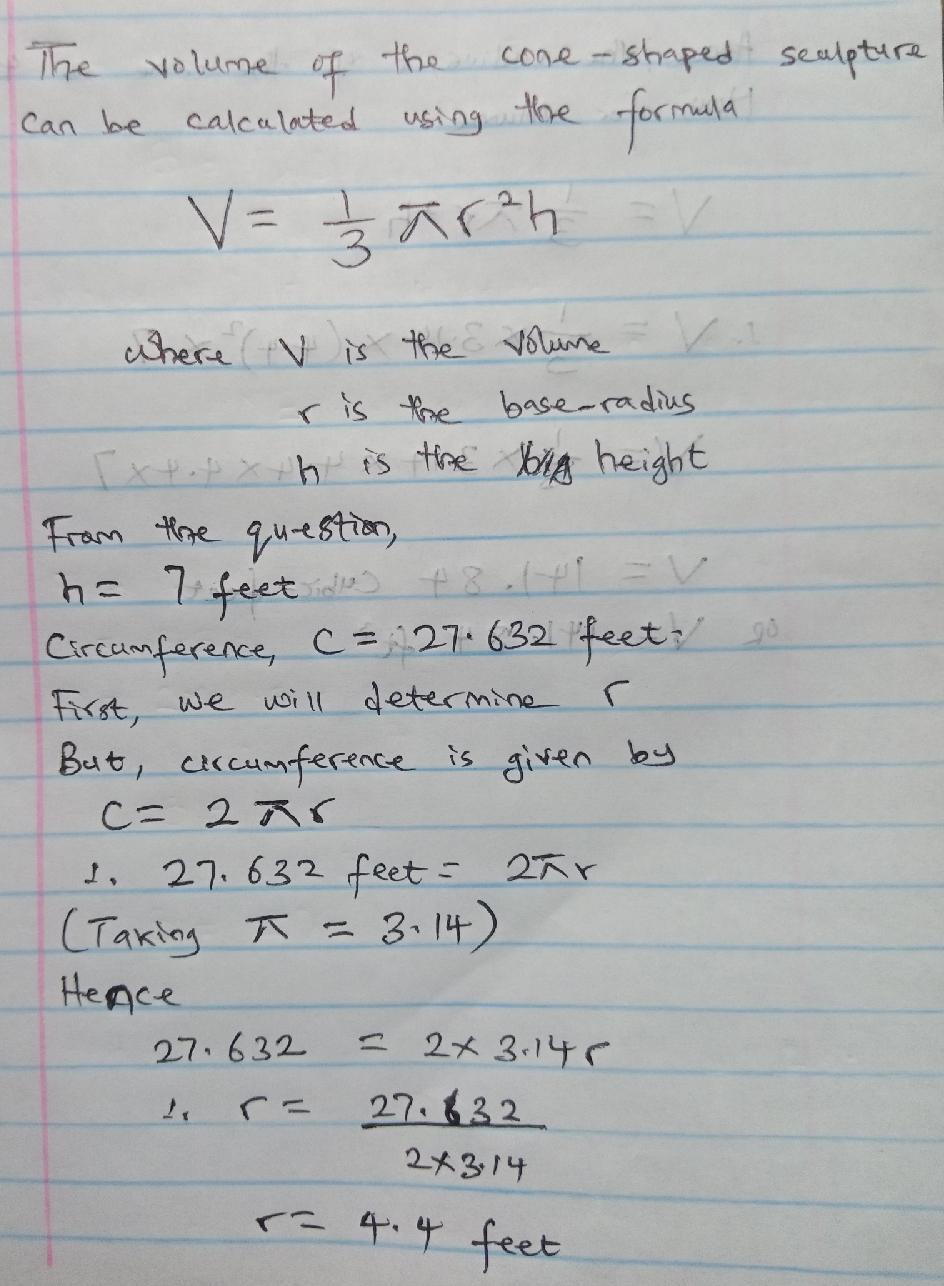 The volume of the cone-shaped sculpture
can be calculated using the formula
V = 1/3 πr²h
where V is the volume
r is the base-radius
h is the height
From the question,
h = 7 feet
Circumference, C = 27.632 feet.
First, we will determine r
But, circumference is given by
C = 2πr
∴ 27.632 feet = 2πr
(Taking π = 3.14)
Hence
27.632 = 2×3.14r
∴ r = 27.632/2×3.14
r = 4.4 feet